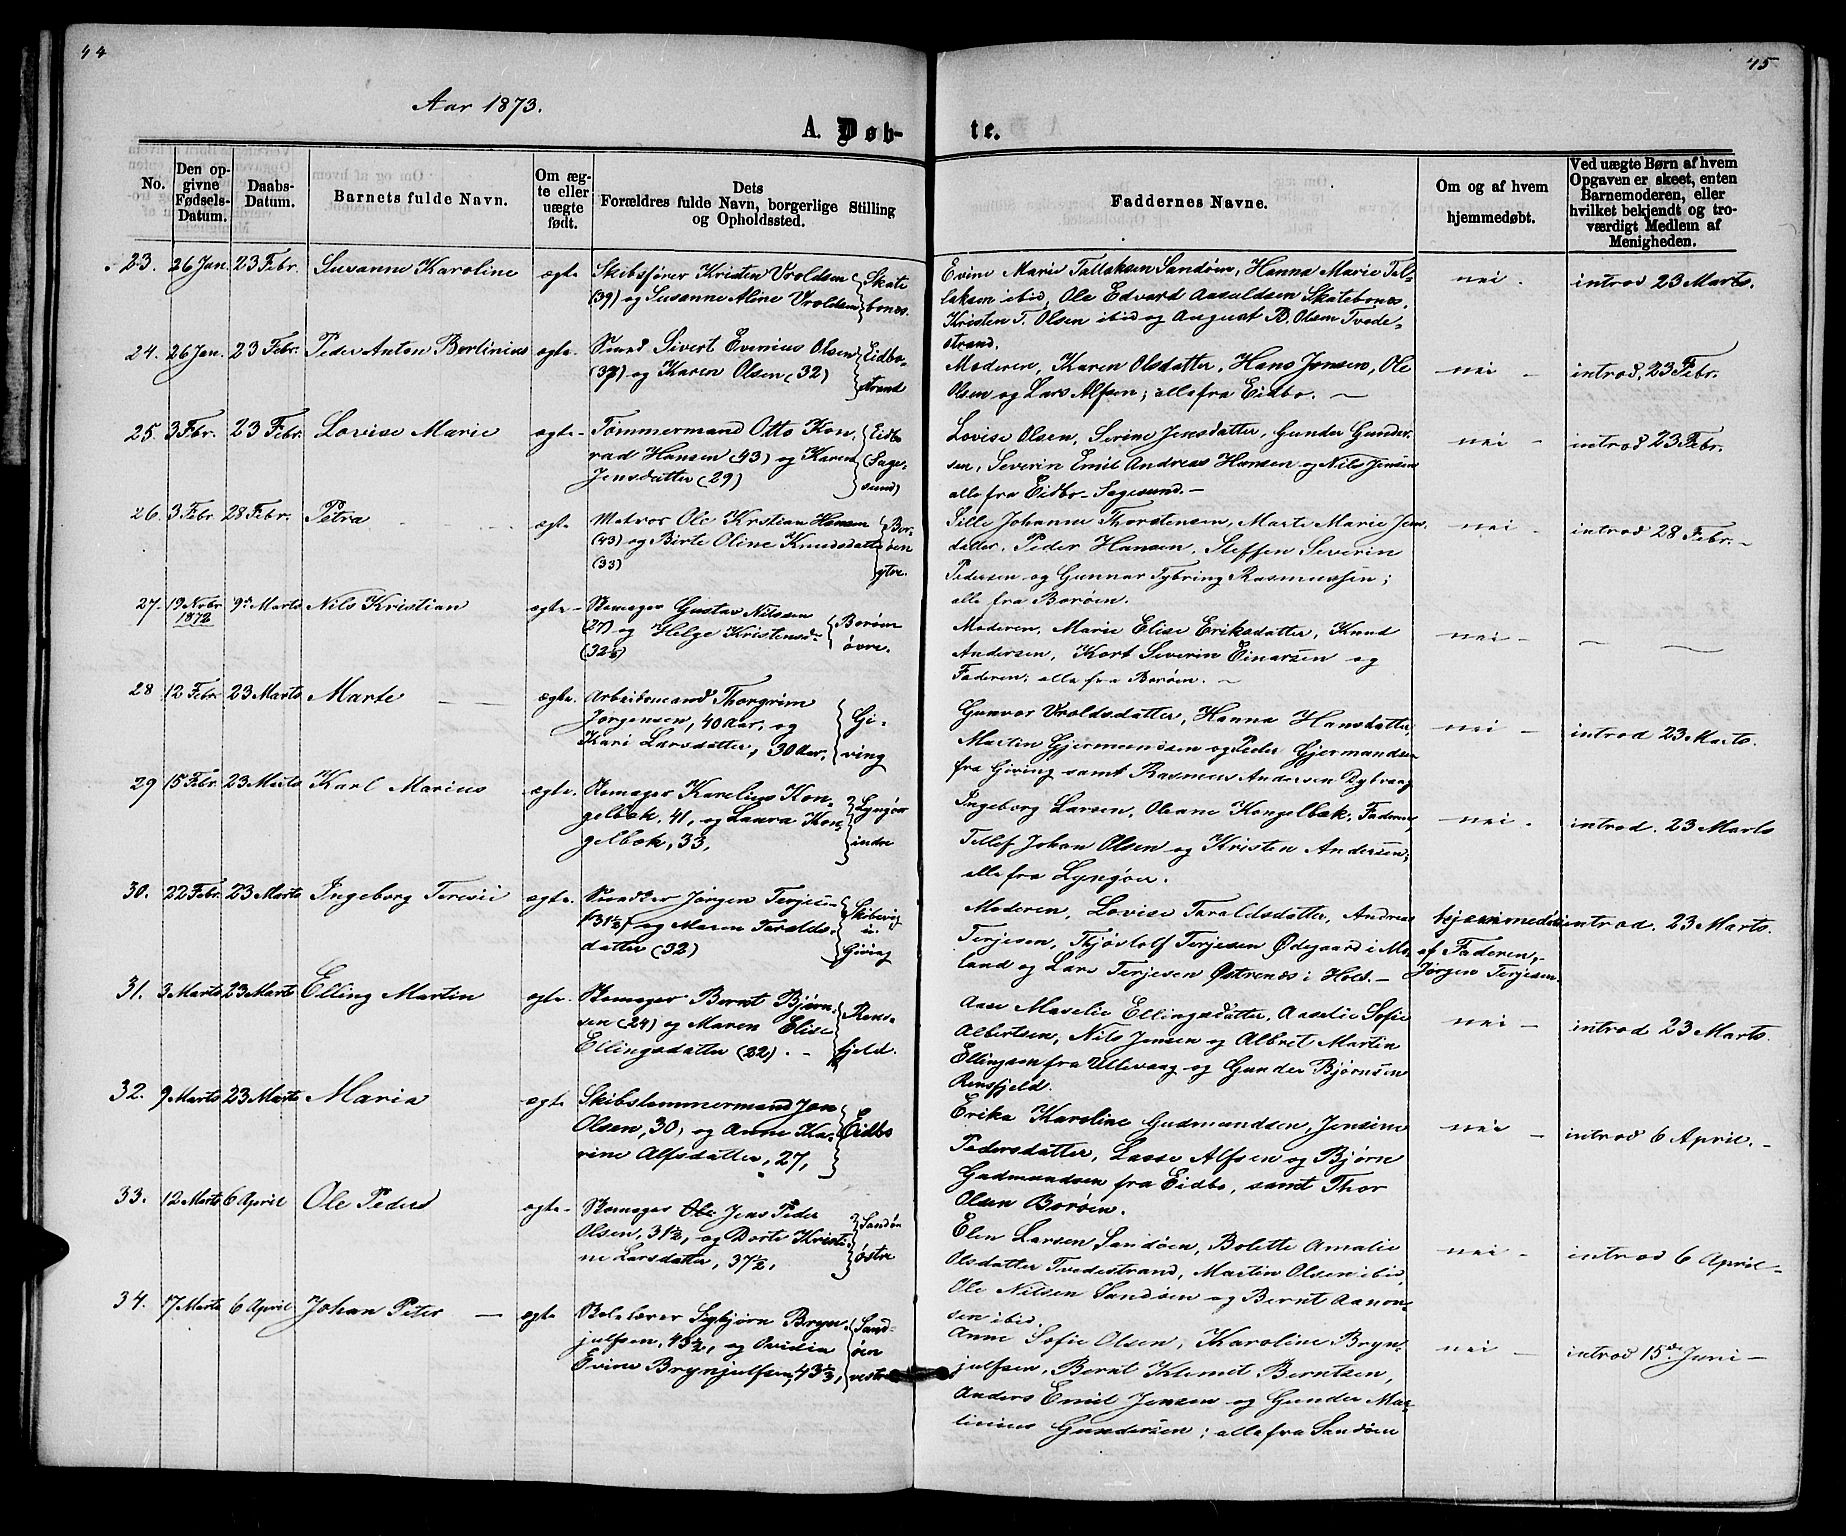 44
45
Aar 1873.
A. Døb-
te.
No.
Den op-
givne
Fødsels-
Datum.
Daabs-
Datum.
Barnets fulde Navn.
Om æg-
te eller
uægte
født.
Dets
Forældres fulde Navn, borgerlige Stilling
og Opholdssted.
Faddernes Navne.
Om og af hvem
hjemmedøbt.
Ved uægte Børn af hvem
Opgaven er skeet, enten
Barnemoderen, eller
hvilket bekjendt og tro-
værdigt Medlem af
Menigheden.
23. 26 Jan. 23 Febr. Susanne Karoline ægte Skibsfører Kristen Vroldsen
(39) og Susanne Aline Vroldsen
Skate
bones.
Evine Marie Tallaksen Sandøen, Hanna Marie Tal-
laksen ibid, Ole Edvard Aasuldsen Skatebones.
Kristen T. Olsen ibid og August B. Olsen Tvede-
strand.
nei.
introd 23 Marts.
24. 26 Jan. 23 Febr. Peder Anton Berlinius ægte Sivert Evenius Olsen
(37) og Karen Olsen (32)
Eidbo-
strand
Moderen, Karen Olsdatter, Hans Jensen, Ole
Olsen og Lars Alfsen; alle fra Eidbo. –
nei –
introd. 23 Febr.
25. 3 Febr. 23 Febr. Lovise Marie ægte – Tømmermand Otto Kon-
rad Hansen (43) og Karen
Jensdatter (29)
Eidbo
(Sage-
sund)
Lovise Olsen, Serine Jensdatter, Gunder Gunder-
sen, Severin Emil Andreas Hansen og Nils Jensen
alle fra Eidbo-Sagesund. –
nei –
introd 23 Febr.
26. 3 Febr. 28 Febr. Petra ægte Matros Ole Kristian Hansen
(43) og Birte Oline Knudsdatter
(33)
Bor-
øen
ytre.
Sille Johanne Thorstensen, Marte Marie Jens-
datter, Peder Hansen, Steffen Severin
Pedersen og Gunnar Tybring Rasmussen;
alle fra Borøen.
nei –
introd 28 Febr. –
27. 19 Novbr 9de Marts Nils Kristian ægte – Gustav Nilssen
1872
(27) og Helge Kristensd-
Borøen
øvre.
Moderen, Marie Elise Eriksdatter, Knud
Andersen, Kort Severin Einarsen og
Faderen; alle fra Borøen. –
nei –
28 12 Febr 23 Marts Marte ægte. Arbeidsmand Thorgrim
Jørgensen, 40 Aar, og
Kari Larsdatter, 30 Aar.
Gi-
ving
Gunvor Vroldsdatter, Hanna Hansdatter,
Martin Gjermundsen og Peder Gjermundsen
fra Giving samt Rasmus Andersen Dybvaag
nei –
introd 23 Marts.
29 15 Febr. 23 Marts Karl Marius ægte. Karelius Kon-
gelbæk, 41, og Laura Kon-
gelbæk, 33,
Lyngøer
indre
Ingeborg Larsen, Oleane Kongelbæk, Faderen,
Tellef Johan Olsen og Kristen Andersen;
alle fra Lyngøer.
nei –
introd. 23 Marts
30. 22 Febr. 23 Marts Ingeborg ægte. Jørgen Terjesen
(31½) og Maren Taralds-
datter (32)
Skibsvig
i
Giving
Moderen, Lovise Taraldsdatter, Andreas
Terjesen, Thjøstolf Terjesen Ødegaard i Mo-
land og Lars Terjesen Østrenæs i Holt. –
hjemmedøbt
af Faderen,
Jørgen Terjesen.
introd. 23 Marts.
31. 3 Marts 23 Marts Elling Martin ægte. Bernt Bjørn-
sen (24) og Maren Elise
Ellingsdatter (22). –
Rens-
fjeld.
Aase Maselie Ellingsdatter, Aaselie Sofie
Albertsen, Nils Jensen og Albret Martin
Ellingsen fra Ullevaag og Gunder Bjørnsen
Rensfjeld.
nei –
introd 23 Marts.
32. 9 Marts 23 Marts Maria ægte Skibstømmermand Jan
Olsen, 30, og Anne Ka-
rine Alfsdatter, 27,
Eidbo
Erika Karoline Gudmundsen, Jensine
Pedersdatter, Lasse Alfsen og Bjørn
Gudmundsen fra Eidbo, samt Thor
Olsen Borøen.
nei –
introd 6 April. –
33. 12 Marts 6 April Ole Peder ægte – Jens Peder
Olsen, 31½, og Dorte Kristi-
ne Larsdatter, 37½,
Sandøen
østre
Elen Larsen Sandøen, Bolette Amalie
Olsdatter Tvedestrand, Martin Olsen ibid,
Ole Nilsen Sandøen og Bernt Aanon-
sen ibid.
nei –
introd 6 April –
34. 17 Marts 6 April Johan Peter – ægte Sigbjørn Bryn-
julfsen, 45½, og Ovidia
Evine Brynjulfsen, 43½,
Sand-
øen
vestre
Anne Sofie Olsen, Karoline Bryn-
julfsen, Bernt Klemet Berntsen,
Anders Emil Jensen og Gunder Mar-
Gundersen; alle fra Sandøen
nei –
introd 15de Juni –